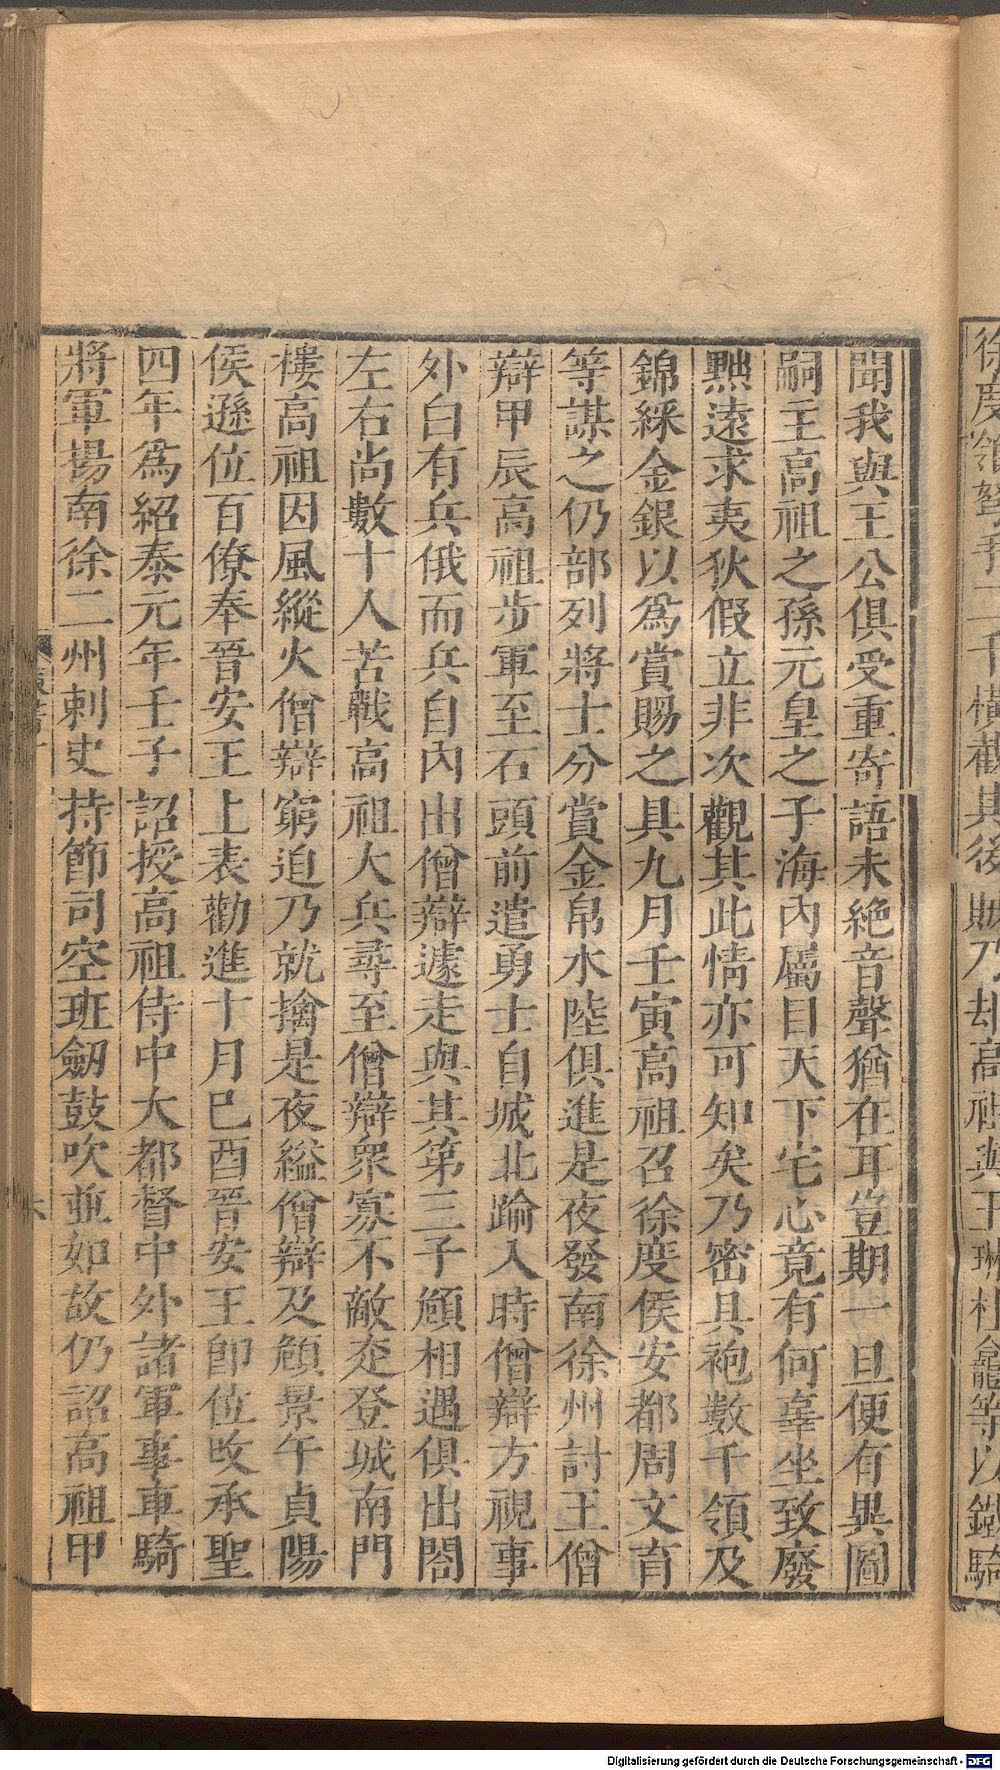 徐度領弩手二千橫截其後賊乃却高祖與王琳杜龕等以鐵騎
聞我與王公俱受重寄語未絕音聲猶在耳豈期一旦便有異圖
嗣主高祖之孫元皇之子海內屬目天下宅心竟有何辜坐致廢
黜遠求夷狄假立非次觀其此情亦可知矣乃密具袍數千領及
錦綵金銀以爲賞賜之具九月壬寅高祖召徐度侯安都周文育
等謀之仍部列將士分賞金帛水陸俱進是夜發南徐州討王僧
辯甲辰高祖步軍至石頭前遣勇士自城北踰入時僧辯方視事
外白有兵俄而兵自內出僧辯遽走與其第三子頠相遇俱出閤
左右尚數十人苦戰高祖大兵尋至僧辯衆寡不敵走登城南門
樓高祖因風縱火僧辯窮迫乃就擒是夜縊僧辯及頠景午貞陽
侯遜位百僚奉晉安王上表勸進十月巳酉晉安王卽位改承聖
四年爲紹泰元年壬子詔授高祖侍中大都督中外諸軍事車騎
將軍揚南徐二州刺史持節司空班劒鼓吹並如故仍詔高祖甲
Digitalisierung gefördert durch die Deutsche Forschungsgemeinschaft - DFG